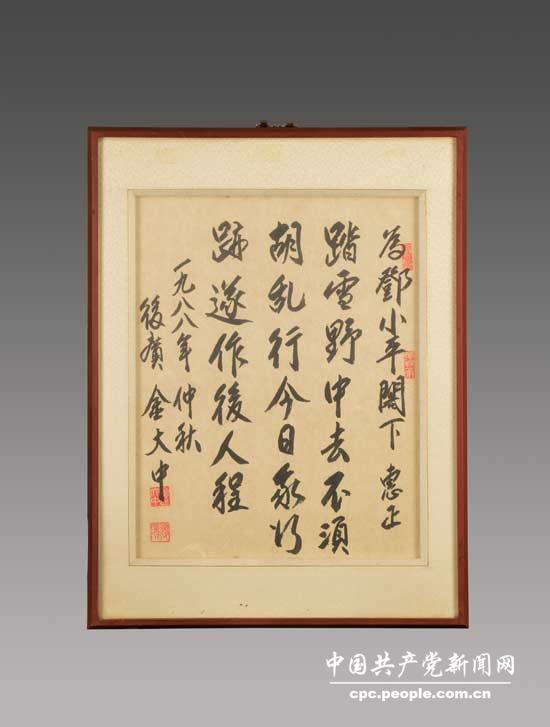 為鄧小平閣下 惠正
踏雪野中去不須
胡乱行今日我行
跡遂作後人程
一九八八年 仲秋
後廣 金大中
中国共产党新闻网
cpc.people.com.cn